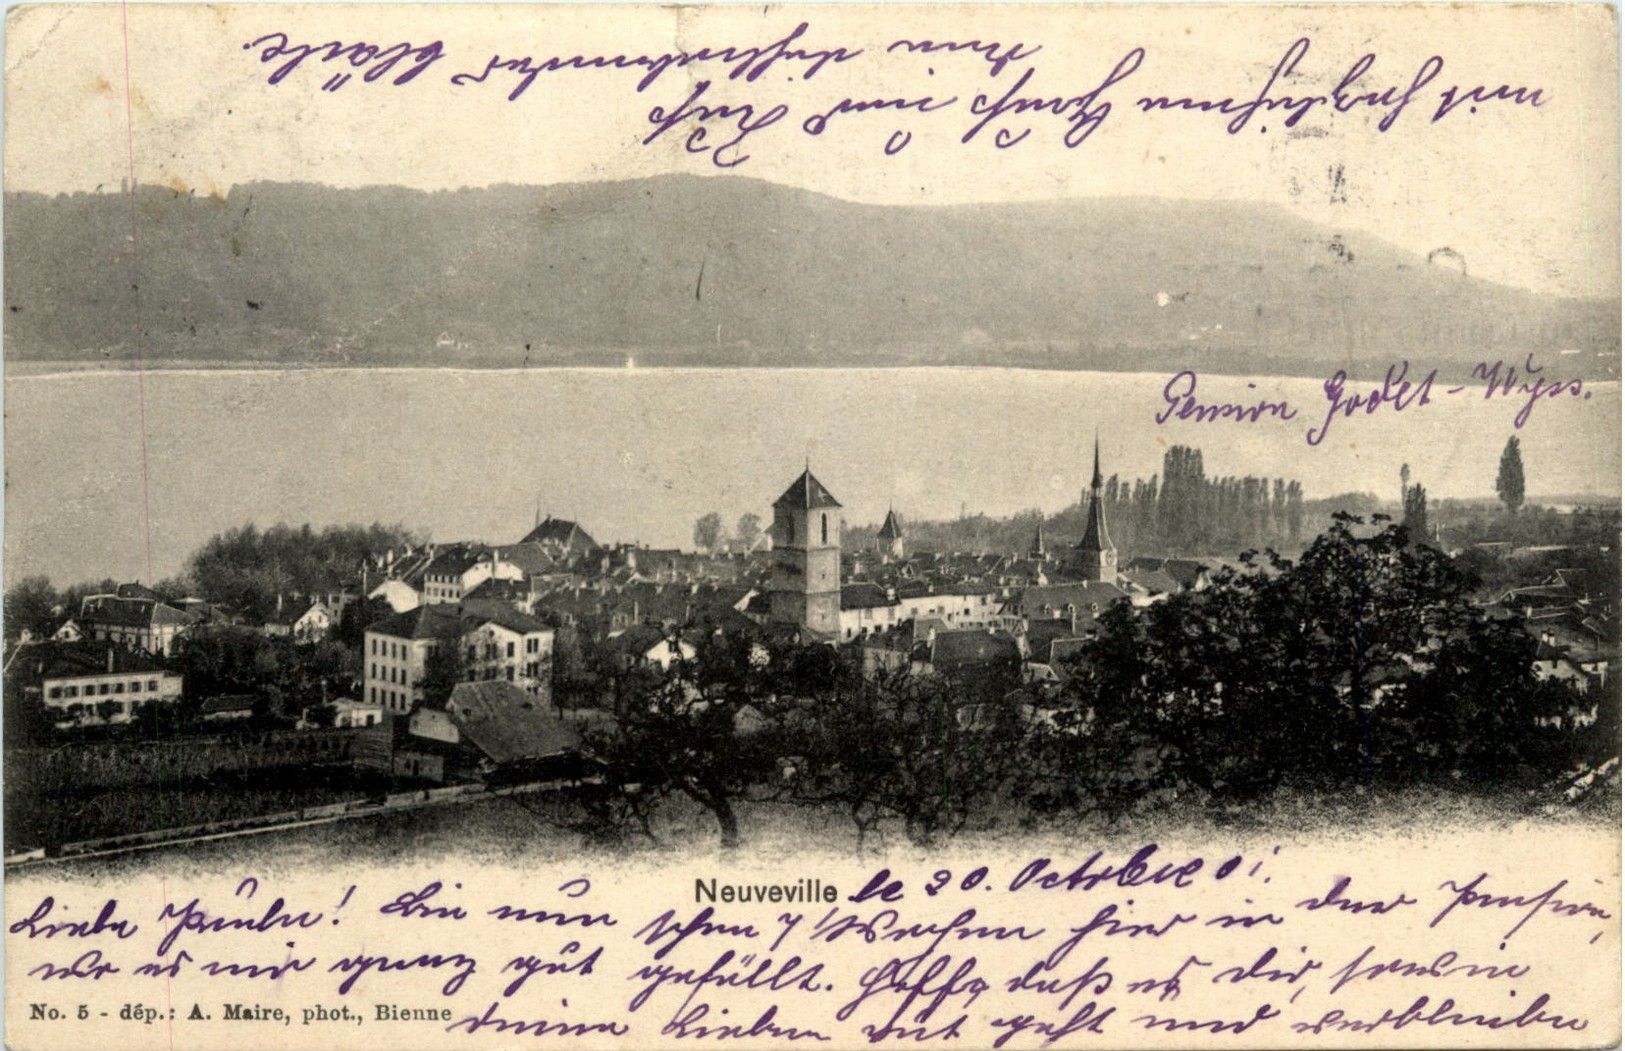 Pension Godet-Wyss.
Neuveville le 20. Octobre 01.
Liebe Paula! Bin nun schon 7 Wochen hier in der Pension,
wo es mir ganz gut gefällt. Hoffe, daß es dir, sowie
No. 5 - dép.: A. Maire, phot., Bienne
deinen Lieben gut geht und verbleibe
mit herzlichem Gruß und Kuß
dein